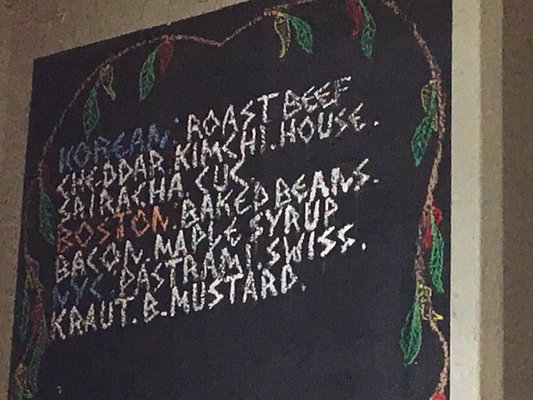 KOREAN. ROAST BEEF
CHEDDAR. KIMCHI. HOUSE.
SAIRACHA. CUS
BOSTON. BAKED BEANS.
BACON. MAPLE SYRUP
NYC. PASTRAMI. SWISS.
KRAUT. B. MUSTARD.